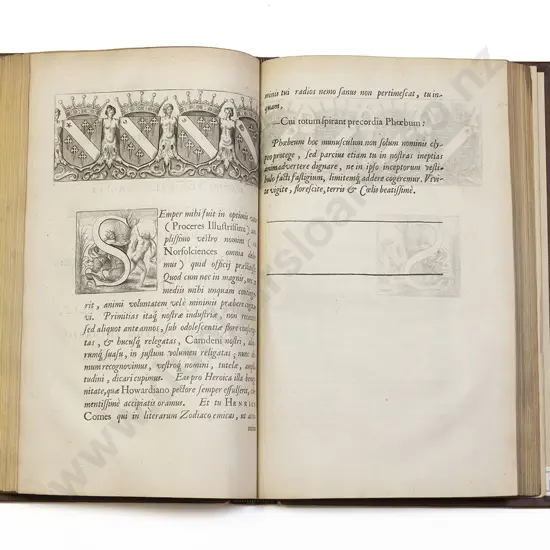 SEmper mihi fuit in optionis
(Proceres Illustrissimi)
plissimo vestro nomini
Norfolciences omnia
mus) quod officij præsta
Quod cum nec in magnis, nec
mediis mihi unquam contige
rit, animi voluntatem vel è minimis præbere
vi. Primitias itaq; nostræ industriæ, non
sed aliquot ante annos, sub adolescentiæ flore
tas, & hucusq; relegatas, Camdeni nostri,
rumq; suasu, in justum volumen religatas; nunc
mum recognovimus, vestróq; nomini, tutelæ,
tudini, dicari cupimus. Eas pro Heroica illa
nitate, quæ Howardiano pectore semper effulsere,
mentissimè accipiatis oramus. Et tu HENRICE
Comes qui in literarum Zodiaco emicas, ut
minis
minis tui radios nemo sanus non pertimescat, tu in-
quam,
—Cui totum spirant precordia Phœbum:
Phœbeum hoc munusculum non solum nominis cly-
peo protege, sed parcius etiam tu in nostras ineptias
animadvertere dignare, ne in ipso inceptorum vesti-
bulo facti fastigium, limitemq; addere cogeremur. Vivi-
te vigite, florescite, terris & Cœlo beatissimi.